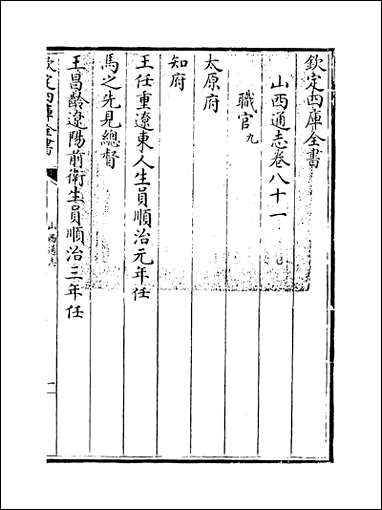 欽定四庫全書
山西通志卷八十一
職官九
太原府
知府
王任重遼東人生員順治元年任
馬之先見總督
王昌齡遼陽前衛生員順治三年任
欽定四庫全書
山西通志
一